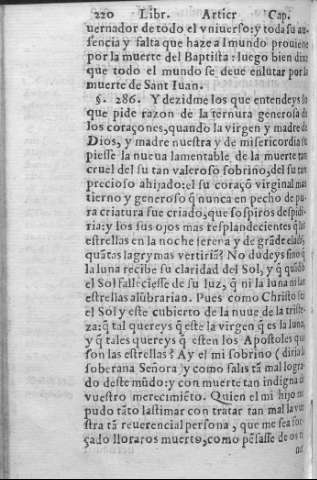 220 Libr. Articr Cap.
uernador de todo el vniuerso: y toda su au-
sencia y falta que haze al mundo prouiene
por la muerte del Baptista: luego bien dize
que todo el mundo se deue enlutar por la
muerte de Sant Iuan.
§. 286. Y dezidme los que entendeys lo
que pide razon de la ternura generosa de
los coraçones, quando la virgen y madre de
Dios, y madre nuestra y de misericordia su
piesse la nueua lamentable de la muerte tan
cruel del su tan valeroso sobrino, del su tan
precioso ahijado: el su coraçõ virginal mas
tierno y generoso q̃ nunca en pecho de pu-
ra criatura fue criado, que sospiros despidi-
ria: y los sus ojos mas resplandecientes q̃ las
estrellas en la noche serena y de grãde elada,
quãtas lagrymas vertiriã? No dudeys sino q̃
la luna recibe su claridad del Sol, y q̃ quãdo
el Sol falleciesse de su luz, q̃ ni la luna ni las
estrellas alũbrarian. Pues como Christo sea
el Sol y este cubierto de la nuue de la triste-
za: q̃ tal quereys q̃ este la virgen q̃ es la luna,
y q̃ tales quereys q̃ esten los Apostoles que
son las estrellas? Ay el mi sobrino (diria la
soberana Señora) y como salis tã mal logra-
do deste mũdo: y con muerte tan indigna de
vuestro merecimiẽto. Quien el mi hijo me
pudo tãto lastimar con tratar tan mal la vue
stra tã reuerencial persona, que me sea for-
çado lloraros muerto, como pẽsasse de os